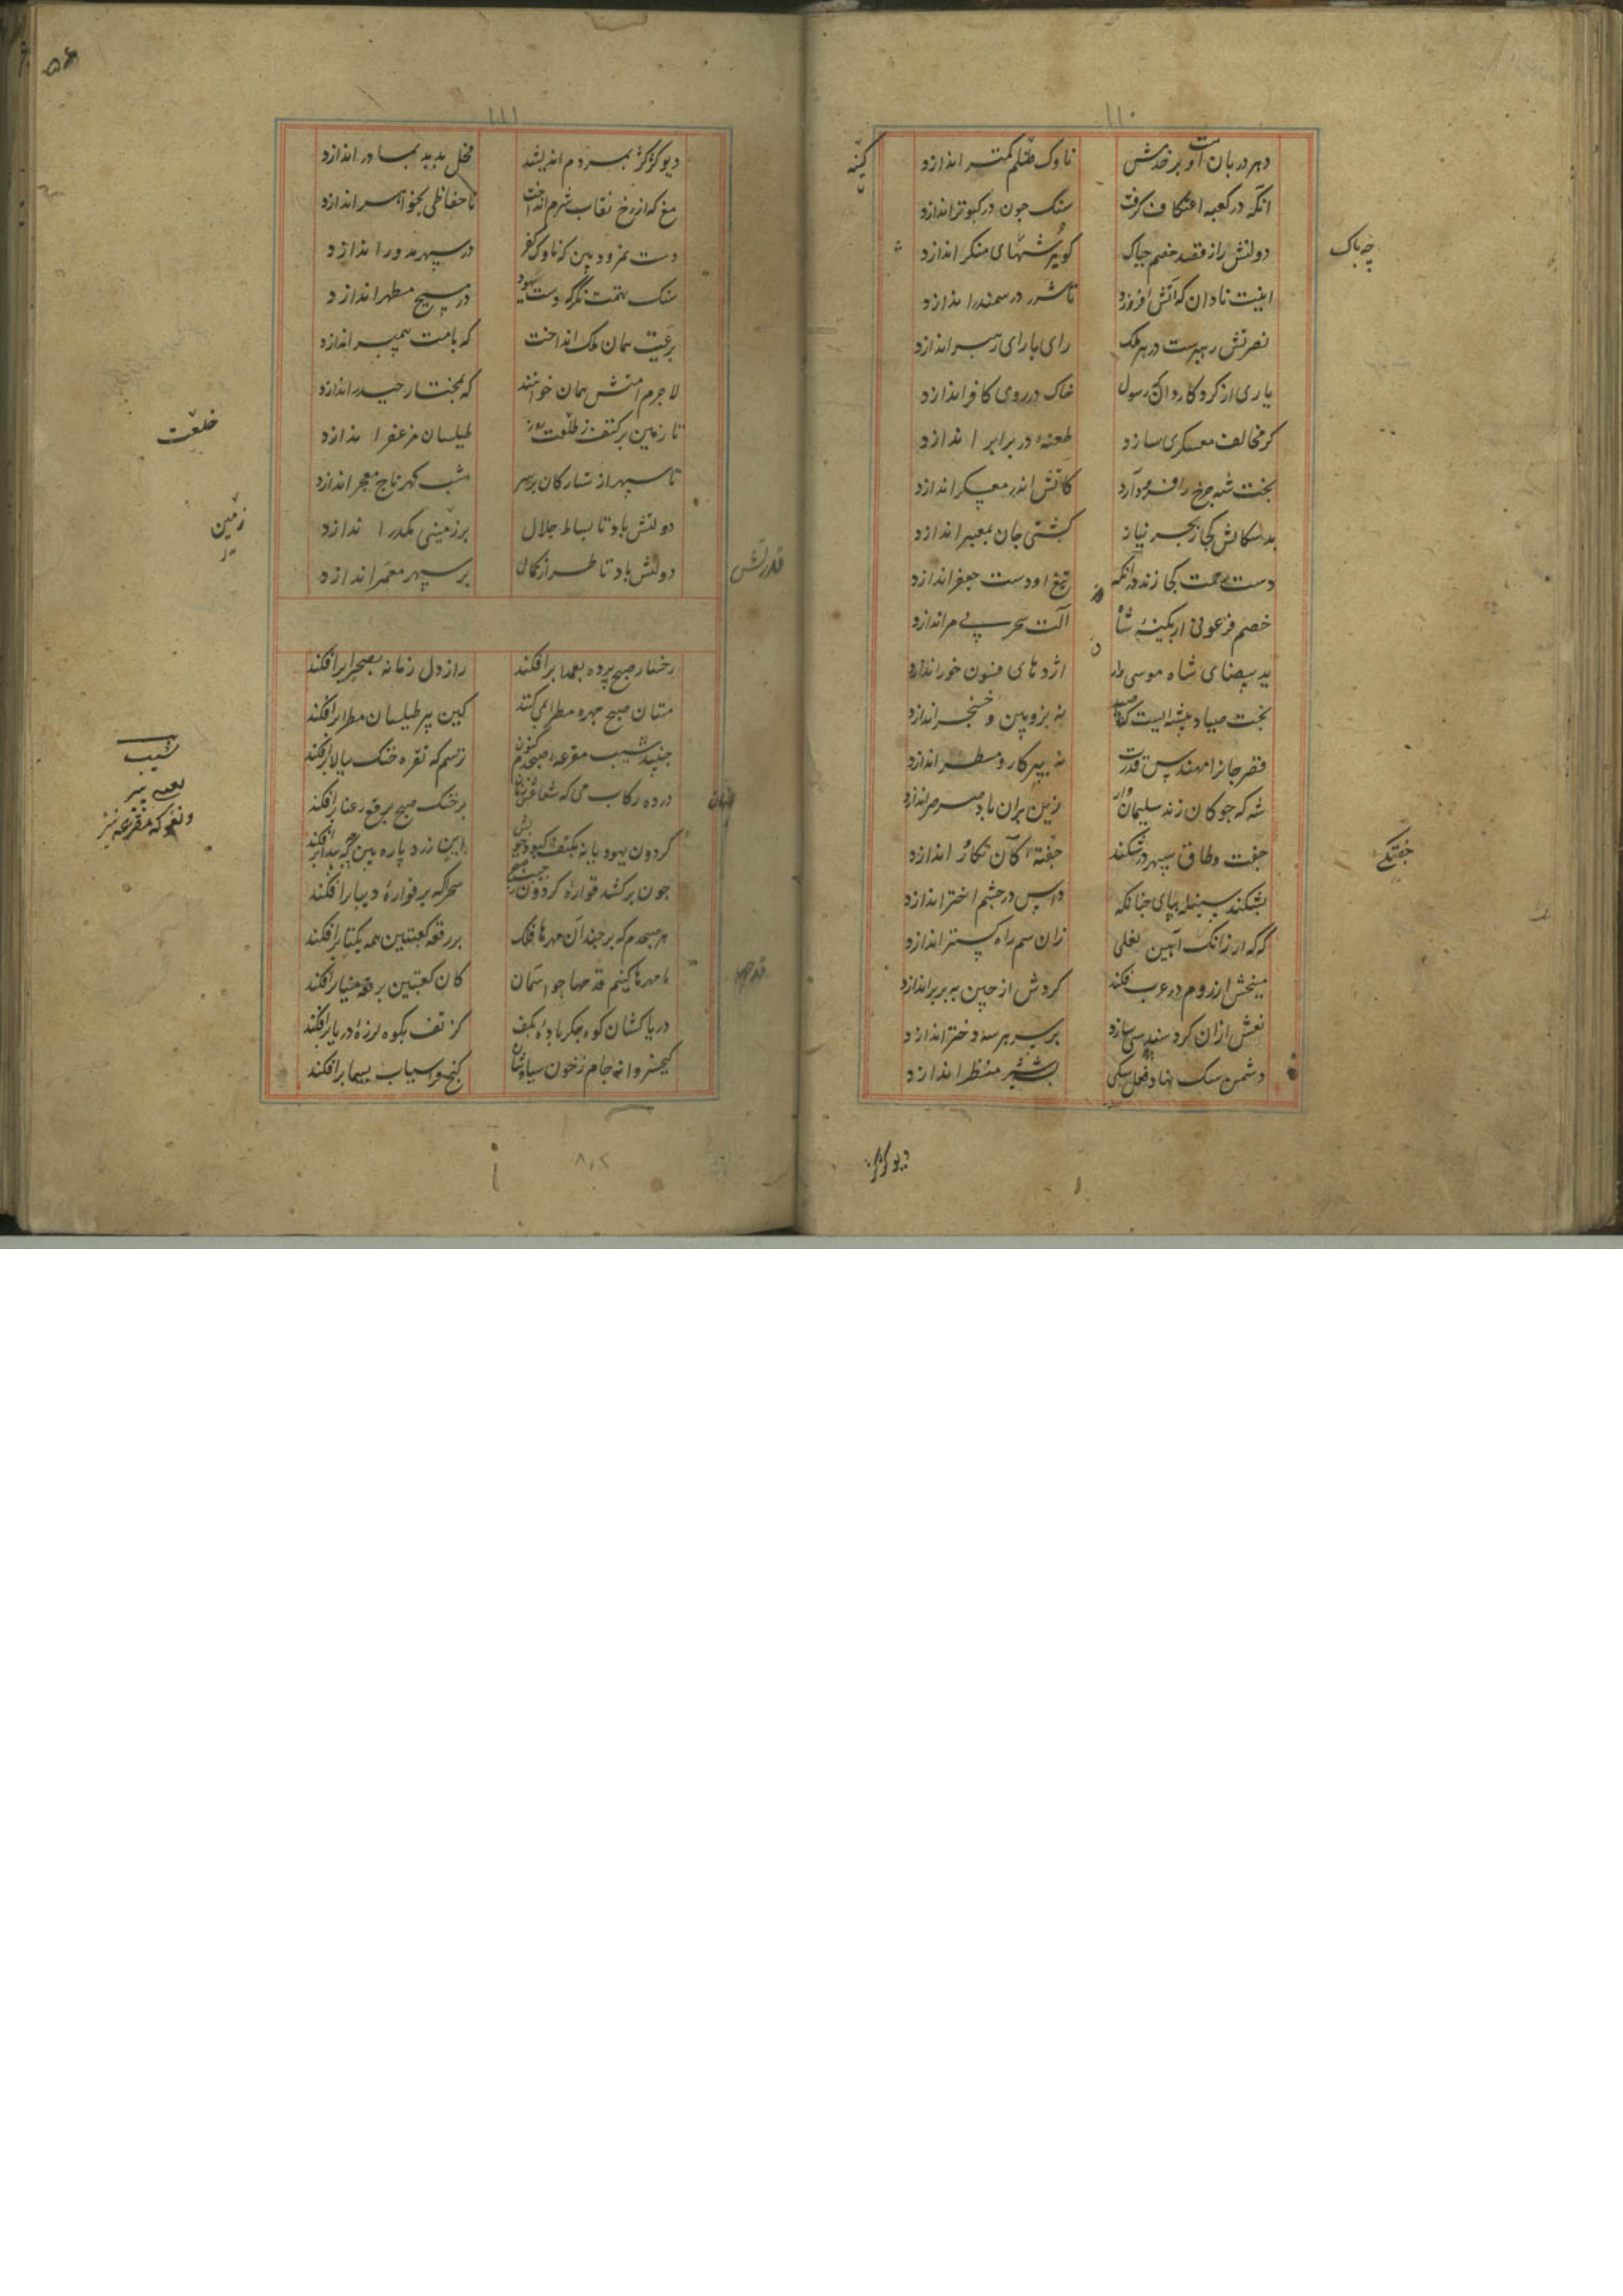 ۱۱۰
دهر دربان اوست بر خدمش ناوک ظلم کمتر اندازد
کینه
انکه در کعبه اعتکاف کرفت سنک چون در کبوتر اندازد
دولتش را ز قصد خصم چباک کو پرشهای منکر اندازد
چه باک
اینت نادان که آتش افروزد تا شرر در سمندر اندازد
نصرتش رهبرست در هر ملک رای با رای رهبر اندازد
یاری از کردکار دان نه رسول خاک در روی کافر اندازد
کر مخالف معسکری سازد طعنهٔ در برابر اندازد
بخت شه چرخ را فرود آرد کاتش اندر معسکر اندازد
بدسکالش کجا ز بحر نیاز کشتی جان بمعبر اندازد
دست همت کجا زند در انکه تیغ او دست جعفر اندازد
خصم فرعونی ار بکینهٔ شاه آلت سحر بی مر اندازد
ید بیضای شاه موسی وار اژدهای فسون خور اندازد
بخت صیاد پیشه ایست که صید نه بزوپین و خنجر اندازد
قصر جانرا مهندس قدرت نه بپرکار و مسطر اندازد
شه که چوکان زند سلیمان وار زین بران باد صرصر اندازد
جفت و طاق سپهر درشکند جفتهٔ کان تکاور اندازد
جفتکی
بشکند سنبله بپای چنانکه داس در چشم اختر اندازد
که که ار زانک آهنین نعلی زان سم راه کستر اندازد
میخش ار روم در عرب فکند کردش از چین به بربر اندازد
نعش ازان کرد سندسی سازد بر سر هر سه دختر اندازد
دشمن سک نهاد فحل سکی بشیر منظر اندازد
دیو کز کژ
۱۱۱
دیو کز کژ بمردم اندیشد فحل بد بد بمادر اندازد
مغ که از رخ نقاب شرم انداخت ناحفاظی بخواهر اندازد
دست نمرود بین که ناوک کفر در سپهر مدور اندازد
سنک تهمت نکر که دست یهود در مسیح مطهر اندازد
بر عتیق همان ملک انداخت که بامت همیبر اندازد
لاجرم امتش همان خوانند که بمختار حیدر اندازد
تا زمین بر کتف ز طلعت روز طیلسان مزعفر اندازد
خلعت
تا سپهر از ستارکان بر سر شب کهر تاج معجر اندازد
دولتش باد تا بساط جلال بر زمینی مکدر اندازد
زمین
دولتش باد تا طراز کمان بر سپهر معمر اندازد
قدرتش
رخسار صبح پرده بعمدا برافکند راز دل زمانه بصحرا برافکند
مستان صبح چهره مطرا می کنند کین پیر طیلسان مطرا برافکند
جنبید شیب مقرعهٔ صبحدم کنون ترسم که نقره خنک ببالا برافکند
شیب
در ده رکاب می که شعاعش عنان زنان بر خنک صبح برقع رعنا برافکند
کردون یهودیانه بکتف کبود خویش این زرد پاره بین که چه پیدا برافکند
چون برکشد قوارهٔ کردون ز جیب صبح سحرکه بر قوارهٔ دیبا برافکند
هر صبحدم که برچند آن مهره ها فلک بر رقعه کعبتین همه یکتا برافکند
ما مهره ها کنیم قدحها چو آسمان کان کعبتین بر رقعهٔ مینا برافکند
دریاکشان کوه جکر بادهٔ بکف کز تف بکوه لرزهٔ دریا برافکند
کیخسروانه جام ز خون سیاوشان کنج فراسیاب بسیما برافکند